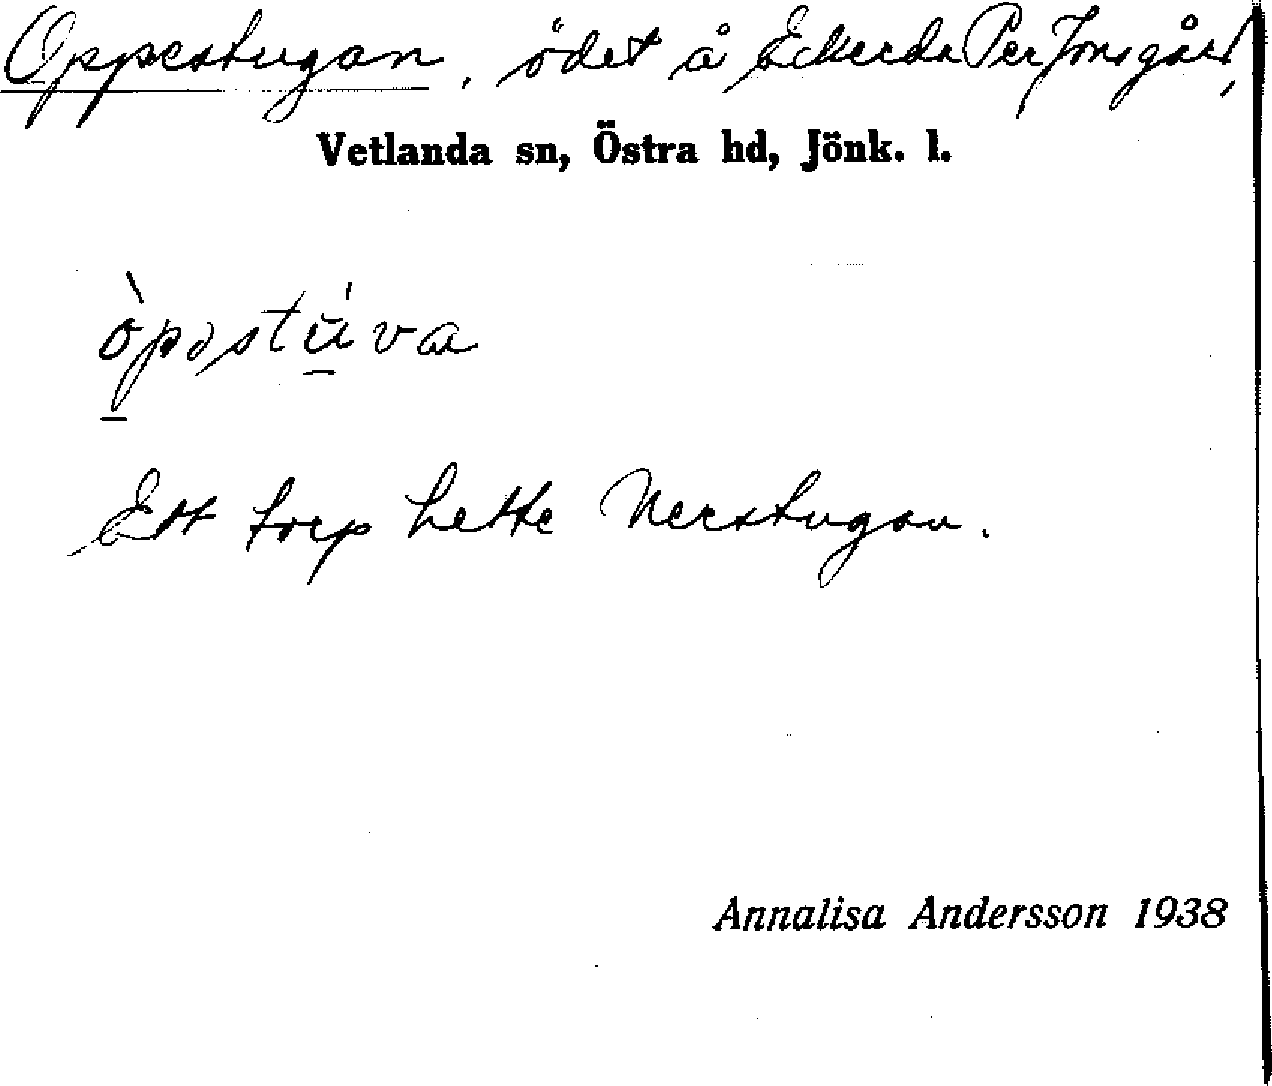 Oppestugan, ödet å Eckerda Per Jonsgård,
Vetlanda sn, Östra hd, Jönk. l.
òpəstúva
Ett torp hette Nerstugan.
Annalisa Andersson 1938